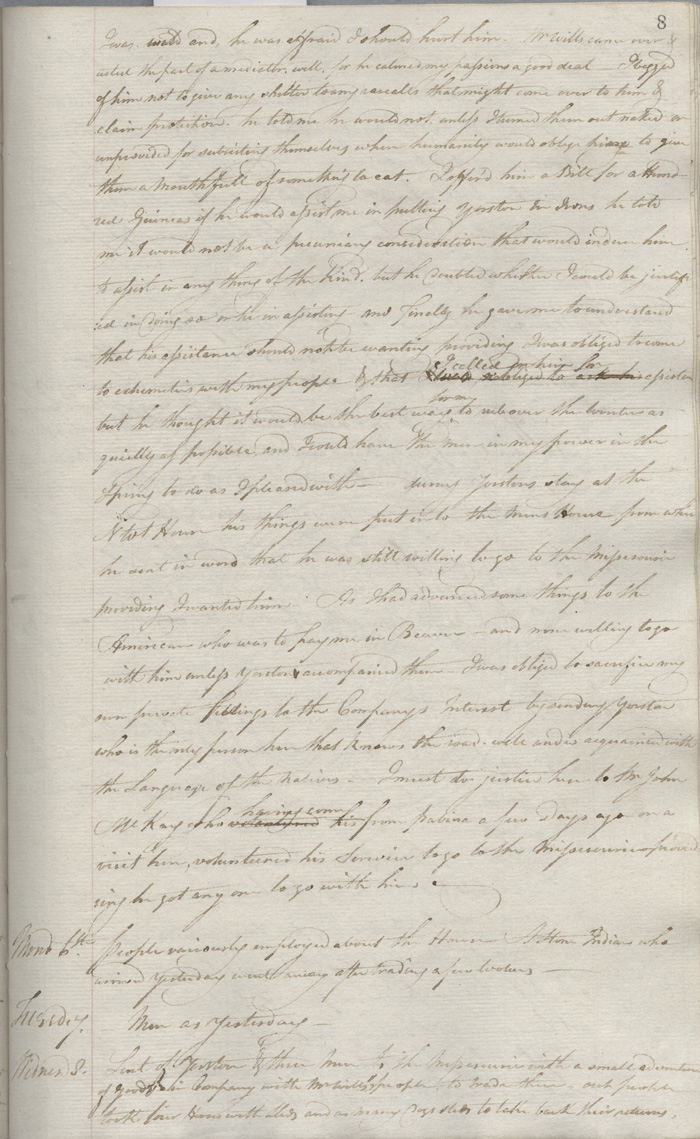 8
I was mad and, he was afraid I should hurt him. Mr Wills came over &
acted the part of a mediator, well, for he calmed my passions a good deal — I begged
of him not to give any shelter to any rascalls that might come over to him &
claim protection. he told me he would not, unless I turned them out naked or
unprovided for subsisting themselves when humanity would oblige him to give
them a Mouthfull of something to eat. I offer'd him a Bill for a Hund-
red Guineas if he would assist me in putting Yorston in Irons he told
me it would not be a pecuniary consideration that would induce him
to assist in any thing of the Kind. but he doubted whether I could be justifi-
ed in doing so or he in assisting and finally he gave me to understand
that his assistance should not be wanting providing I was obliged to come
to extremities with my people & that I called on him for assistance
but he thought it would be the best way for me to rub over the Winter as
quietly as possible, and I could have the men in my power in the
Spring to do as I pleased with — during Yorstons stay at the
N West House his things were put into the Mens House from whence
he sent in word that he was still willing to go to the Missesourie
providing I wanted him. As I had advanced some things to the
American who was to pay me in Beaver — and none willing to go
with him unless Yorston accompanied them — I was obliged to sacrifice my
own private feelings to the Company's Interest by sending Yorston
who is the only person here that knows the road well and is acquainted with
the Language of the Natives — I must do justice here to Mr John
McKay who having come from Pabina a few days ago on a
visit here, volunteered his Service to go to the Missesourie provid
ing he got any one to go with him
Mond 6th. People variously employed about the House Stone Indians who
arrived yesterday went away after trading a few Wolves —
Tuesdy. Men as Yesterday —
Wednes 8. Sent off Yorston & three Men to the Missesourie with a small adventure
of goods in Company with Mr Wills's people to trade there — our people
took four Horses with them and as many Dogs sleds to take back their returns.